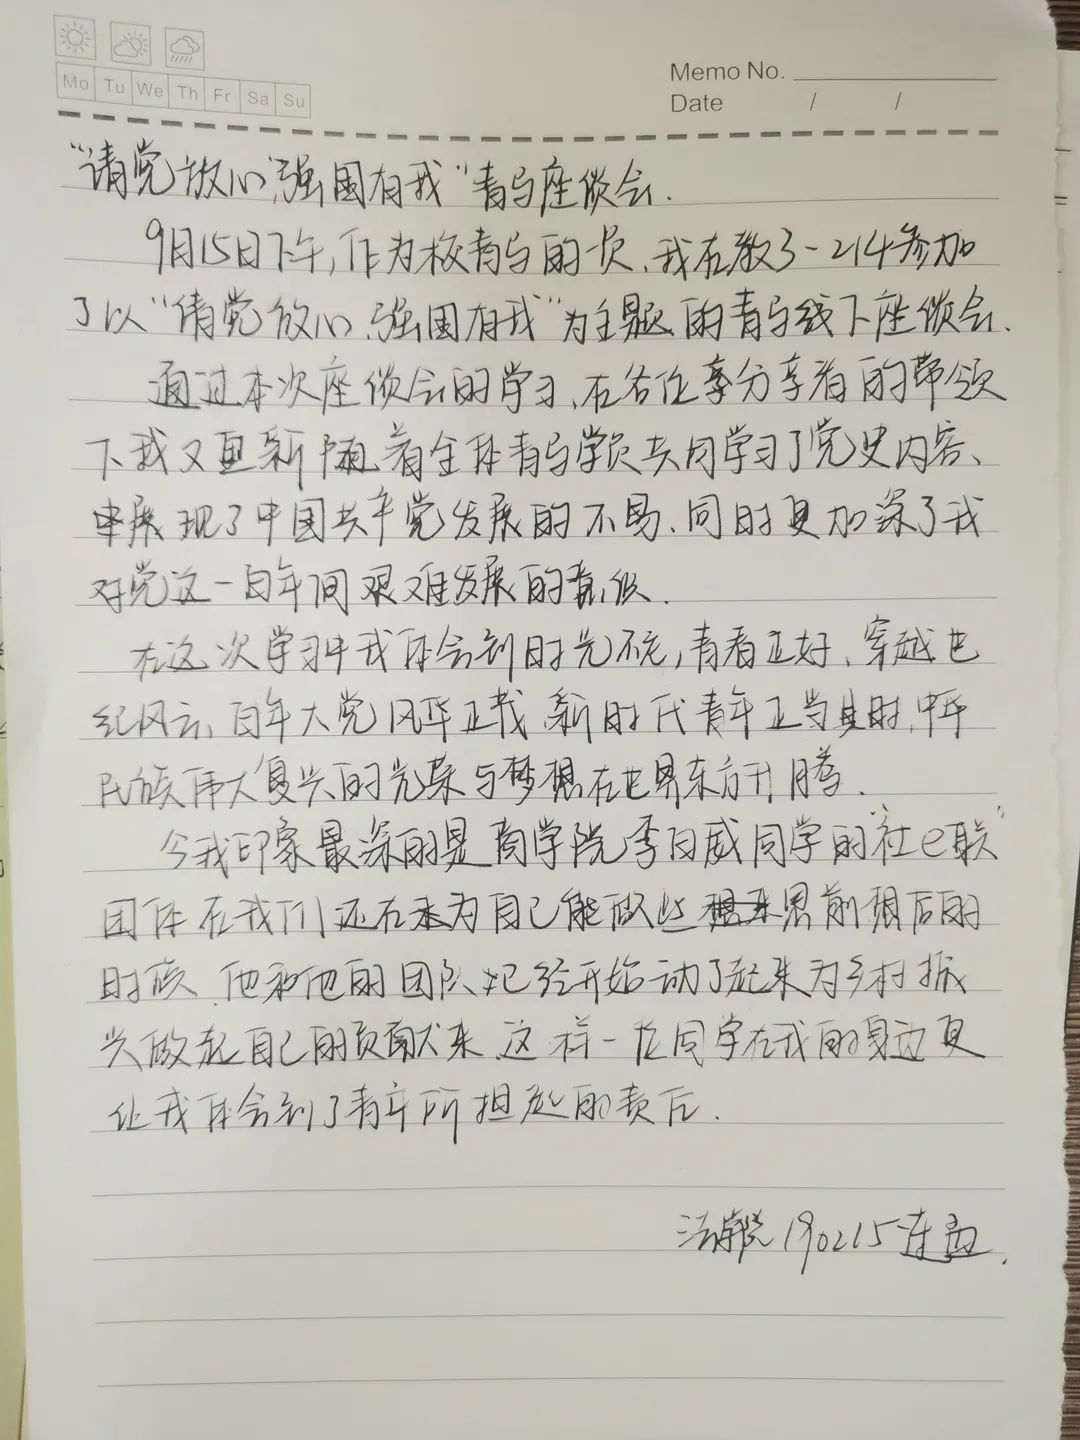 Mo Tu We Th Fr Sa Su
Memo No.
Date / /
“请党放心,强国有我”青马座谈会.
9月15日下午,作为校青马的一员、我在教3-214参加
了以“请党放心 强国有我”为主题的青马线下座谈会.
通过本次座谈会的学习、在各位享分享者的带领
下我又重新随着全体青马学员共同学习了党史内容、
展现了中国共产党发展的不易、同时更加深了我
对党这一百年间艰难发展的
在这次学习中我体会到时光不老,青春正好、穿越世
纪风云、百年大党风华正茂 新时代青年正当其时,中华
民族伟大复兴的光荣与梦想在世界东方升腾.
令我印象最深的是商学院李白威同学的“社e联”
团体 在我们还在未为自己能做些 思前想后的
时候、他和他的团队已经开始动了起来为乡村振
兴做起自己的贡献来 这样一位同学在我的身边更
让我体会到了青年所担起的责任.
法学院 190215 连